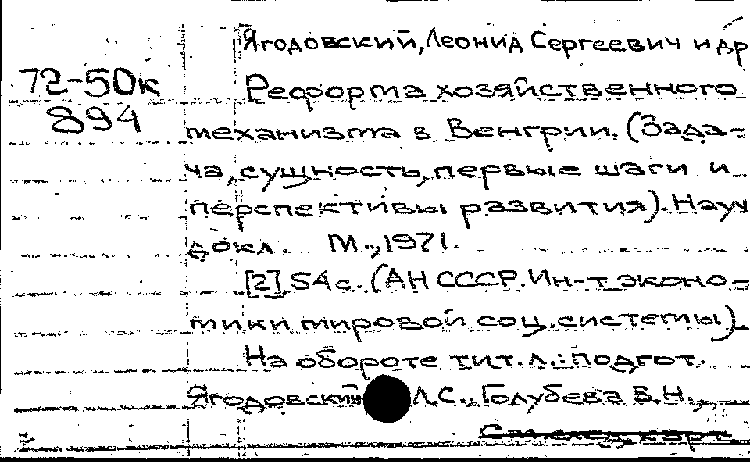 Ягодовский, Леонид Сергеевич и др
72-50к
894
Реформа хозяйственного
механизма в Венгрии. (Зада-
ча, сущность, первые шаги и
перспективы развития). Науч
докл. М., 1971.
[2], 54 с. (АН СССР. Ин-т эконо-
мики мировой соц. системы)
На обороте тит. л.: подгот.
Ягодовский Л.С., Голубева В.Н.,
См. след. карт